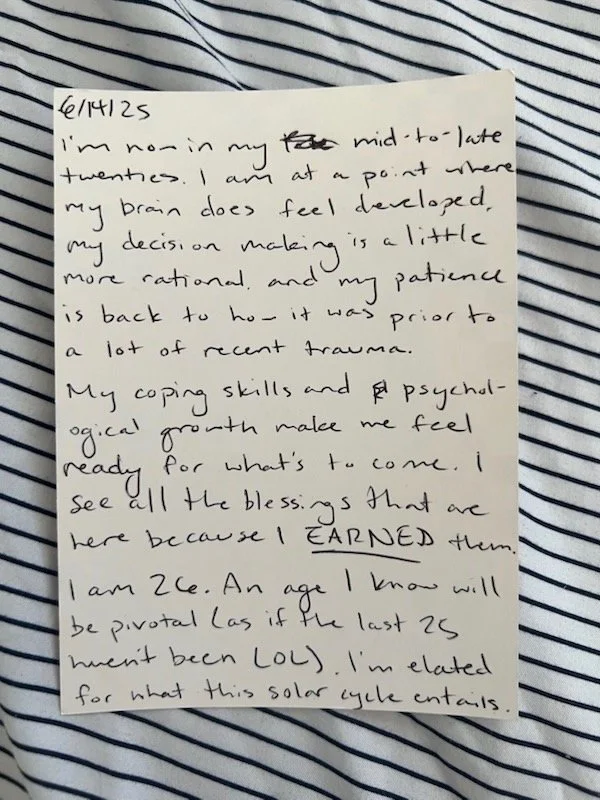 6/14/25
I'm now in my mid-to-late
twenties. I am at a point where
my brain does feel developed,
my decision making is a little
more rational, and my patience
is back to how it was prior to
a lot of recent trauma.
My coping skills and psychol-
ogical growth make me feel
ready for what's to come. I
see all the blessings that are
here because I EARNED them.
I am 26. An age I know will
be pivotal (as if the last 25
haven't been LOL). I'm elated
for what this solar cycle entails.